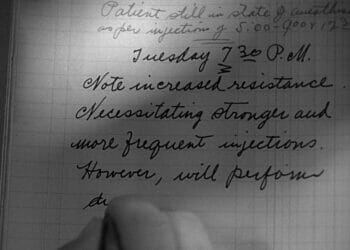 Patient still in state of
as per injections of 5:00 - 9:00 &
Tuesday 7 30 P.M.
Note increased resistance.
Necessitating stronger and
more frequent injections.
However, will perform